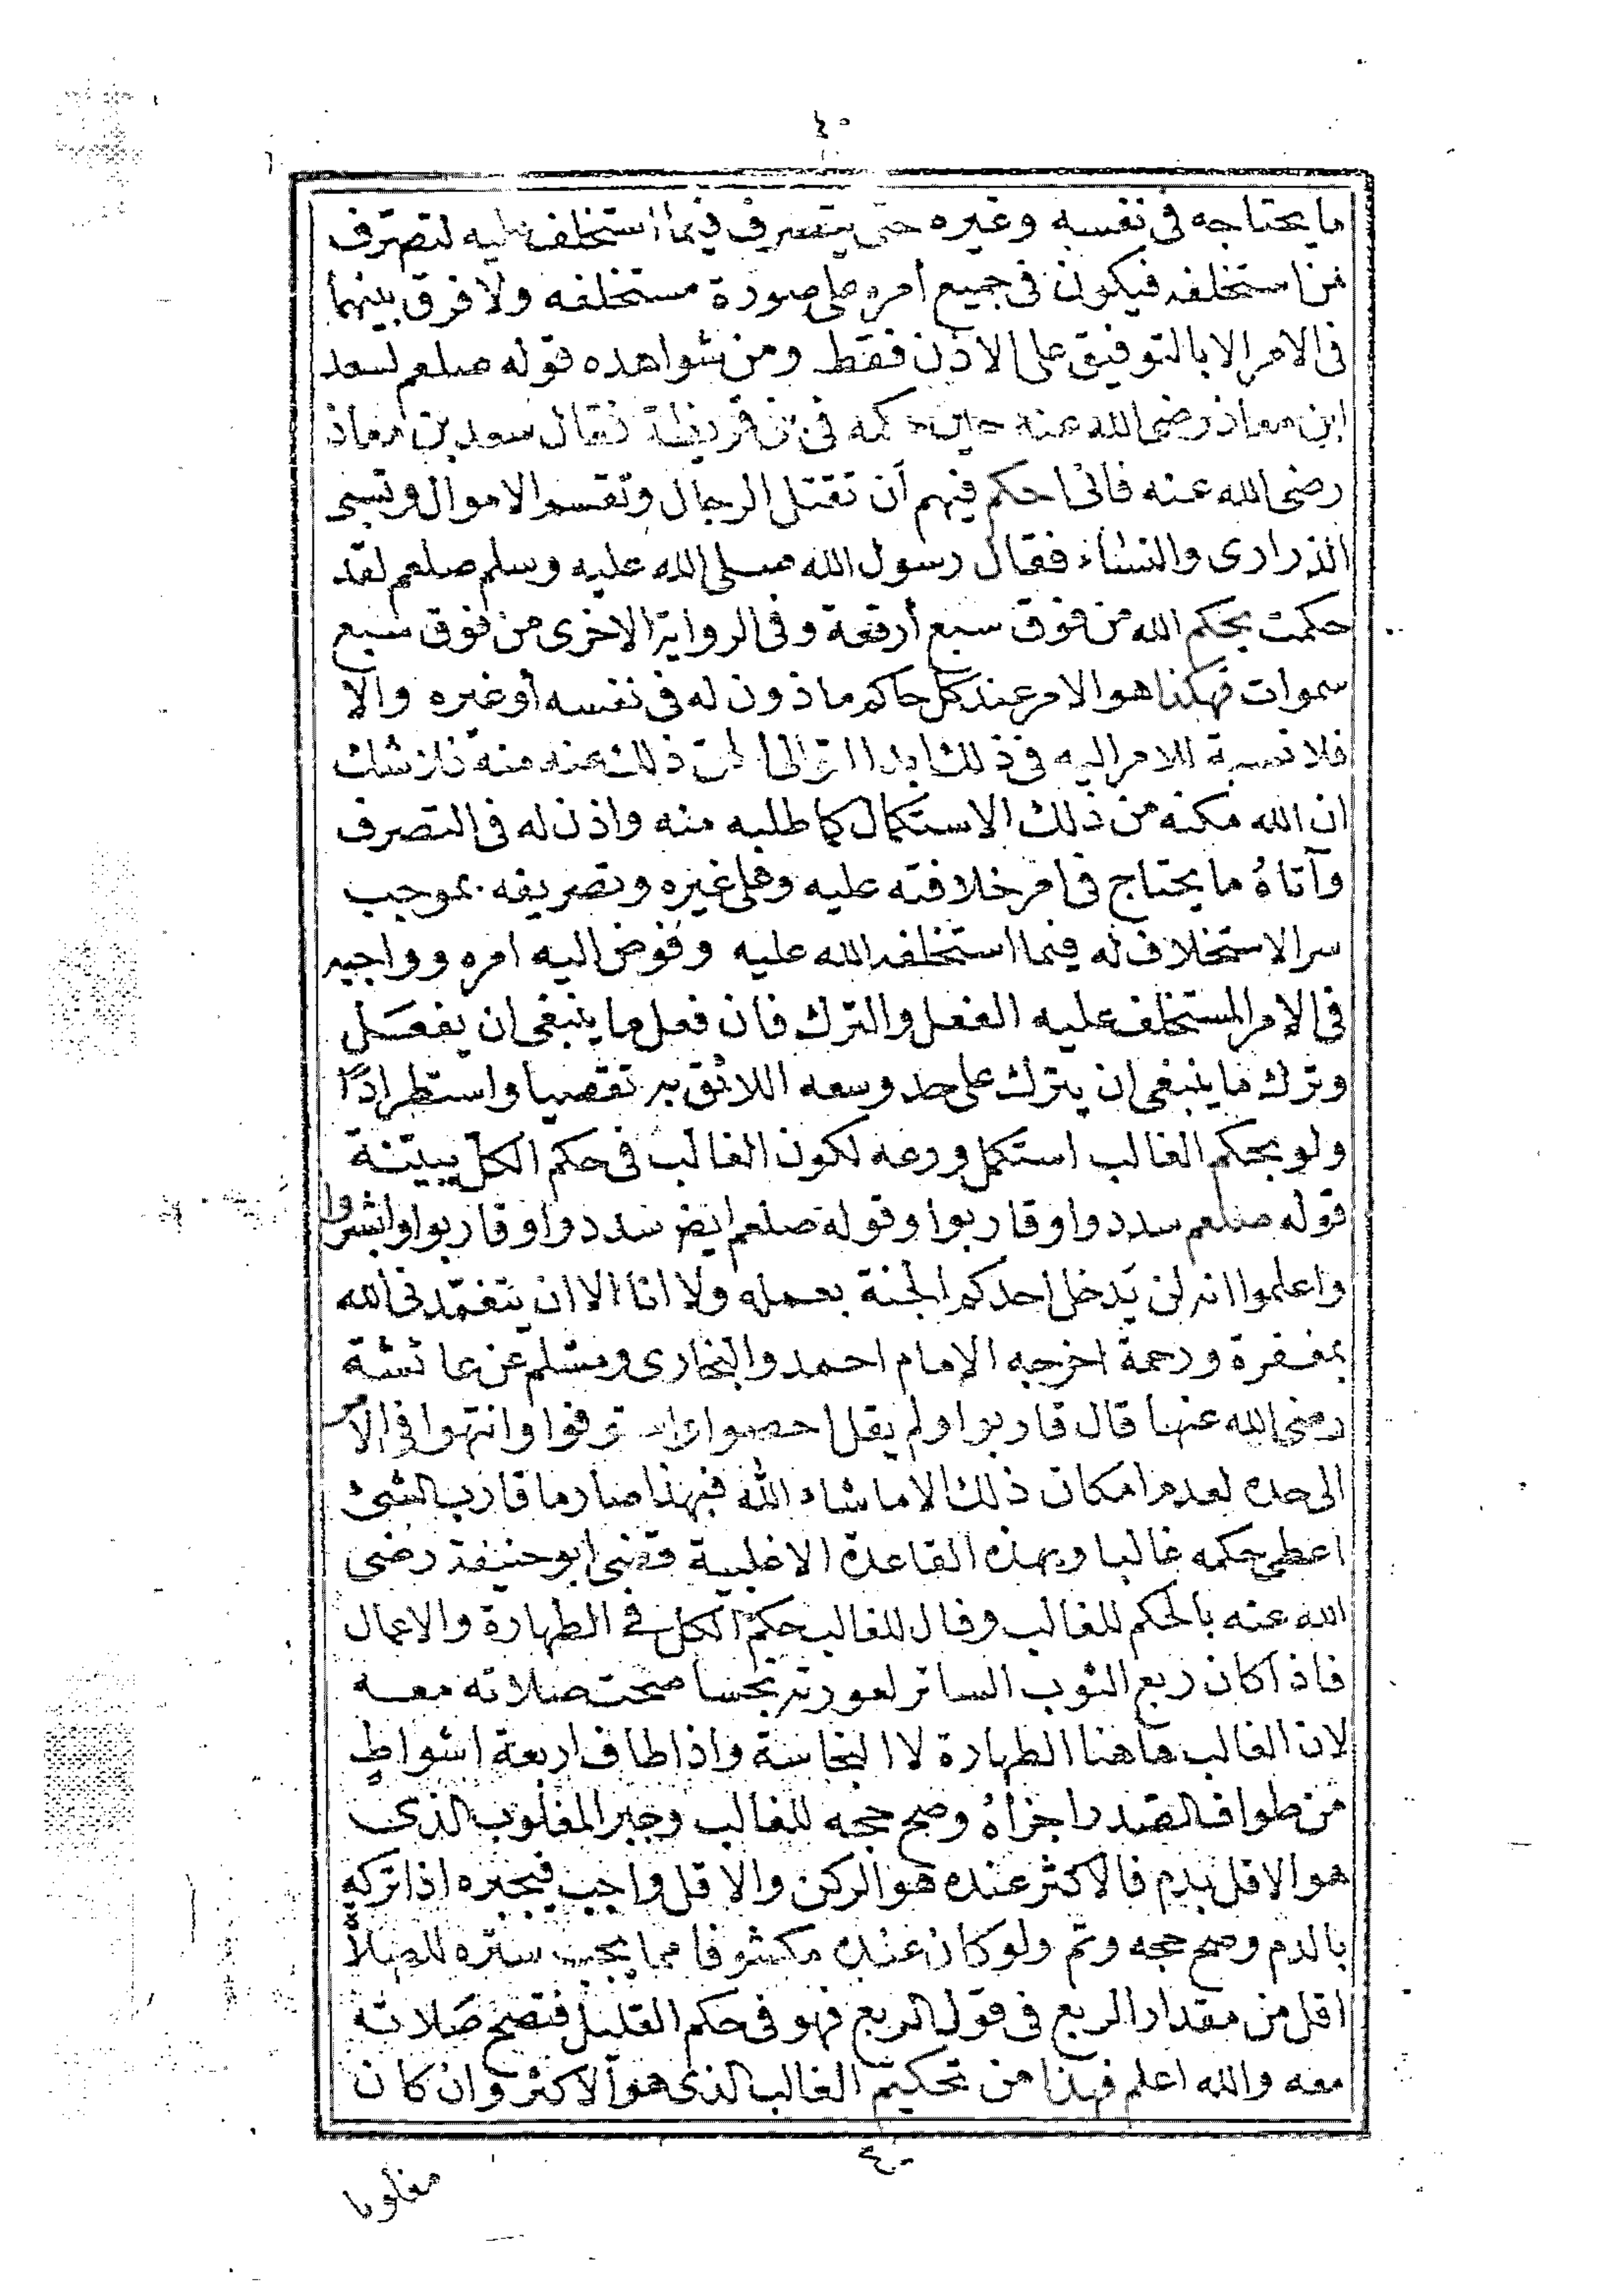 ٤٠
ما يحتاجه فى نفسه وغيره حتى يتصرف فيما استخلف عليه لتصرف
من استخلفه فيكون فى جميع أمره على صورة مستخلفه ولا فرق بينهما
فى الامر الا بالتوفيق على الاذن فقط ومن شواهده قوله صلعم لسعد
ابن معاذ رضى الله عنه حين حكمه فى بنى قريظة فقال سعد بن معاذ
رضى الله عنه فانى احكم فيهم أن تقتل الرجال وتقسم الاموال وتسبى
الذرارى والنساء فقال رسول الله صلى الله عليه وسلم صلعم لقد
حكمت بحكم الله من فوق سبع أرقعة وفى الرواية الاخرى من فوق سبع
سموات فهكذا هو الامر عند كل حاكم ماذون له فى نفسه أو غيره والا
فلا نسبة للامر اليه فى ذلك ذلك عنه منه
ان الله مكنه من ذلك الاستكمال كما طلبه منه واذن له فى التصرف
وآتاهُ ما يحتاج فى امر خلافته عليه وعلى غيره وتصريفه بموجب
سر الاستخلاف له فيما استخلفه الله عليه وفوض اليه امره وواجبه
فى الامر المستخلف عليه الفعل والترك فان فعل ما ينبغى ان يفعَل
وترك ما ينبغى ان يترك على حد وسعه اللائق به تقصيا واستطرادًا
ولو بحكم الغالب استكمل ورعه لكون الغالب فى حكم الكل يبيّنه
قوله صلعم سددوا وقاربوا وقوله صلعم ايضر سددوا وقاربوا وابشروا
واعلموا انه لن يَدخل احدكم الجنة بعمله ولا انا الا ان يتغمّدنى الله
بمغفرة ورحمة اخرجه الإمام احمد والبخارى ومسلم عن عائشة
رضى الله عنها قال قاربوا ولم يقل احصوا توقوا وانتهوا فى الامر
الى حده لعدم امكان ذلك الا ما شاء الله فبهذا صار ما قارب الشئ
اعطى حكمه غالبا وبهذه القاعدة الاغلبية قضى ابو حنيفة رضى
الله عنه بالحكم للغالب وقال للغالب حكم الكل فى الطهارة والاعمال
فاذا كان ربع الثوب الساتر لعورته نجسا صحت صلاته معه
لان الغالب هاهنا الطهارة لا النجاسة واذا طاف اربعة اشواط
من طواف الصدر اجزاهُ وصح حجه للغالب وجبر المغلوب الذى
هو الاقل بدم فالاكثر عنده هو الركن والاقل واجب فيجبره اذا تركه
بالدم وصح حجه وتم ولو كان عنده مكشوفا مما يجب ستره للصلاة
اقل من مقدار الربع فى قول الربع فهو فى حكم القليل فتصح صَلاته
معه والله اعلم فهذا من تحكيم الغالب الذى هو الاكثر وان كان
٤٠
مغلوبا